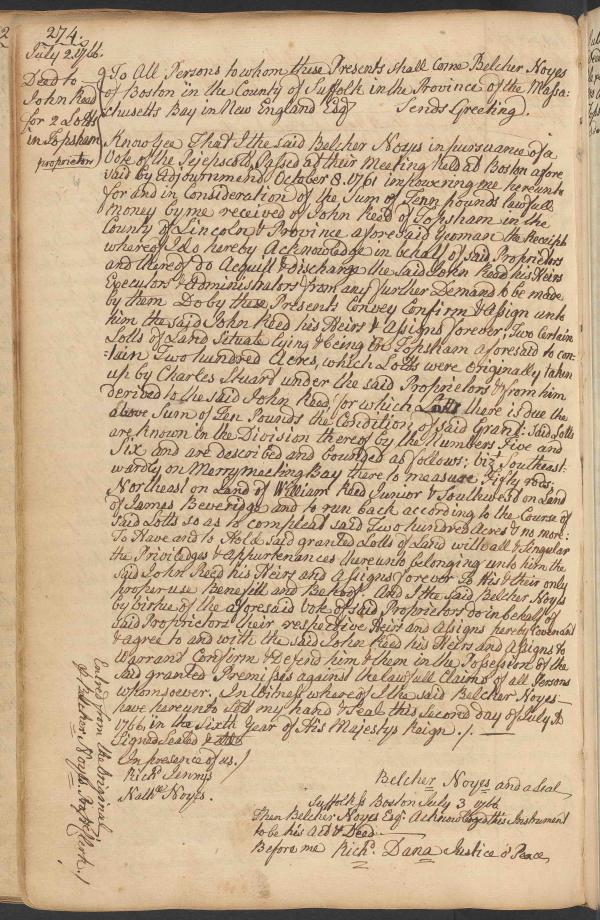 274.
July 2. 1766.
Deed to
John Reed
for 2 Lotts
in Topsham
proprietors
To All Persons to whom these Presents shall Come Belcher Noyes
of Boston in the County of Suffolk in the Province of the Massa-
chusetts Bay in New England Esqr Sends Greeting.
Know yee That I the said Belcher Noyes in pursuance of a
Vote of the Pejepscot Passed at their Meeting held at Boston afore
said by Adjournment October 8. 1761 impowering me hereunto
for and in Consideration of the Sum of Tenn pounds lawfull
money by me received of John Reed of Topsham in the
County of Lincoln & Province aforesaid Yeoman the Receipt
whereof I do hereby Acknowledge in behalf of said Proprietors
and thereof do Acquitt & discharge the said John Reed his Heirs
Executors & Administrators from any further Demand to be made
by them Do by these Presents Convey Confirm & Assign unto
him the said John Reed his Heirs & Assigns forever, Two Certain
Lotts of Land Situate lying & being in Topsham aforesaid to con-
:tain Two hundred Acres, which Lotts were Originally taken
up by Charles Stuart under the said Proprietors & from him
derived to the said John Reed, for which there is due the
above Sum of Ten Pounds the Condition of said Grant: Said Lotts
are known in the Division thereof by the Numbers Five and
Six and are described and bounded as follows; vizt Southeast-
wardly on Merrymeeting Bay there to measure Fifty rods;
Northeast on Land of William Reed Junior & Southwest on Land
of James Beveridge and to run back according to the Course of
said Lotts so as to compleat said Two hundred Acres & no more:
To Have and to Hold said granted Lotts of Land with all & Singular
the Priviledges & Appurtenances thereunto belonging unto him the
Said John Reed his Heirs and Assigns forever To His & their only
proper use Benefitt and Behoof. And I the said Belcher Noyes
by Virtue of the aforesaid Vote of said Proprietors do in behalf of
said Proprietors their respective Heirs and Assigns hereby Covenant
& agree to and with the said John Reed his Heirs and Assigns to
Warrant Confirm & Defend him & them in the Possession of the
said granted Premisses against the lawfull Claims of all Persons
whomsoever. In Witness whereof I the said Belcher Noyes
have hereunto Sett my hand & Seal this Second day of July A
1766, in the Sixth Year of His Majestys Reign./.
Signed Sealed &
In presence of us./
Richd Jennys
Nathl Noyes.
Belcher Noyes and a Seal
Suffolk ss Boston July 3 1766
Then Belcher Noyes Esqr Acknowledged this Instrument
to be his Act & Deed
Before me Richd. Dana Justice o' Peace
Enterd from the Original
Belcher Noyes Clerk./